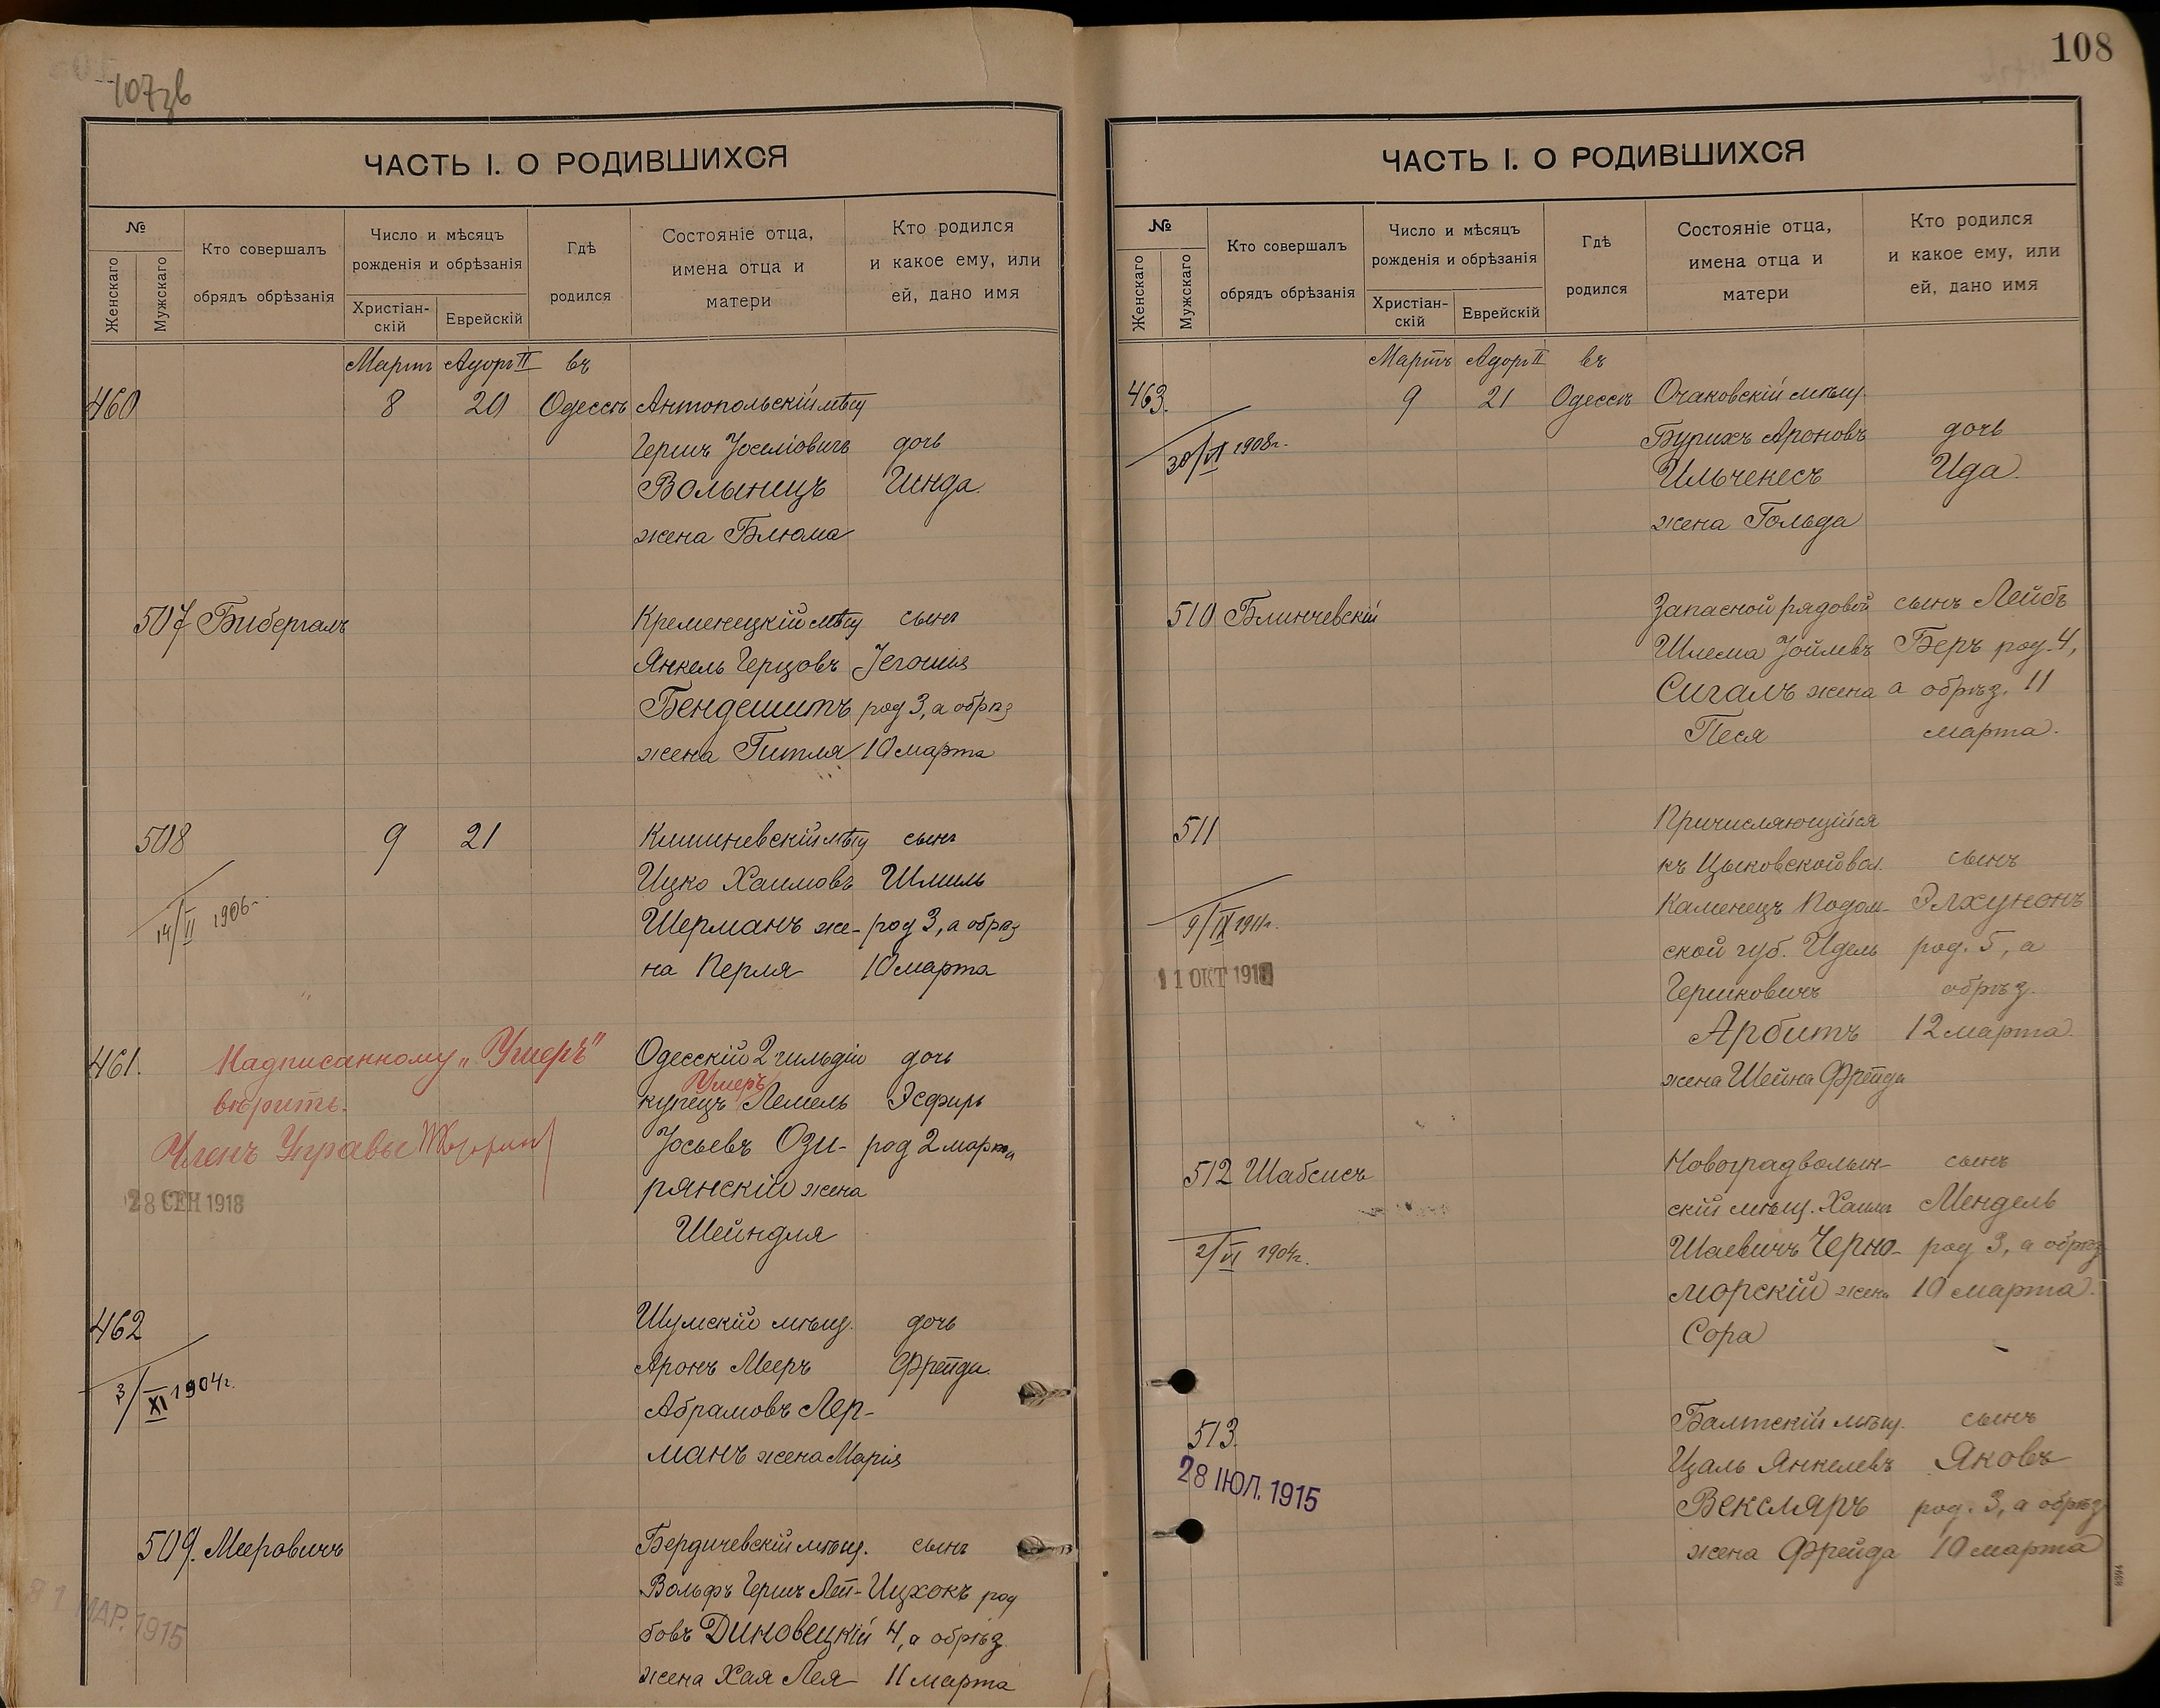 107зв
ЧАСТЬ I. О РОДИВШИХСЯ
№
Женскаго
Мужскаго
Кто совершалъ
обрядъ обрѣзанія
Число и мѣсяцъ
рожденія и обрѣзанія
Христіан-
скій
Еврейскій
Гдѣ
родился
Состояніе отца,
имена отца и
матери
Кто родился
и какое ему, или
ей, дано имя
Мартъ Адоръ II въ
460 8 20 Одессѣ Антопольскій мѣщ
Гершъ Іоселіовичъ дочь
Волынецъ Гинда.
жена Блюма
507 Бибергалъ Кременецкій мѣщ сынъ
Янкель Герцовъ Іегошія
Бендешитъ род 3, а обрѣз
жена Гитля 10 марта
508 9 21 Кишиневскій мѣщ сынъ
Ицко Хаимовъ Шмиль
14/II 1906 Шерманъ же- род 3, а обрѣз
на Перля 10 марта
461. Надписанному „Умеръ" Одесскій 2 гильдіи дочь
Умеръ
вѣрить. купецъ Лемель Эсфирь
Членъ Управы Іосьевъ Ози- род 2 марта
28 СЕН 1918 рянскій жена
Шейндля
462 Шумскій мѣщ. дочь
3/XI 1904г. Аронъ Мееръ Фрейда.
Абрамовъ Лер-
манъ жена Марія
509. Мееровичъ Бердичевскій мѣщ. сынъ
Вольфъ Гершъ Лей- Ицхокъ род
31 МАР. 1915 бовъ Диновецкій 4, а обрѣз.
жена Хая Лея 11 марта
108
ЧАСТЬ I. О РОДИВШИХСЯ
№
Женскаго
Мужскаго
Кто совершалъ
обрядъ обрѣзанія
Число и мѣсяцъ
рожденія и обрѣзанія
Христіан-
скій
Еврейскій
Гдѣ
родился
Состояніе отца,
имена отца и
матери
Кто родился
и какое ему, или
ей, дано имя
Мартъ Адоръ II въ
463. 9 21 Одессѣ Очаковскій мѣщ.
30/VI 1908г. Бурихъ Ароновъ дочь
Ильченесъ Ида.
жена Гольда
510 Блинчевскій Запасной рядовой сынъ Лейбъ
Шлема Іойлевъ Беръ род. 4,
Сигалъ жена а обрѣз. 11
Песя марта.
511 Причисляющійся
къ Цыковской вол. сынъ
9/IX 1911г. Каменецъ Подол- Элхунонъ
11 ОКТ 1918 ской губ. Идель род. 5, а
Гершковичъ обрѣз.
Арбитъ 12 марта.
жена Шейна Фрейда
512 Шабсисъ Новоградволын- сынъ
скій мѣщ. Хаимъ Мендель
2/VI 1904г. Шаевичъ Черно- род 3, а обрѣз
морскій жена 10 марта.
Сора
513. Балтскій мѣщ. сынъ
28 ІЮЛ. 1915 Цаль Янкелевъ Яковъ
Векслярь род. 3, а обрѣз
жена Фрейда 10 марта